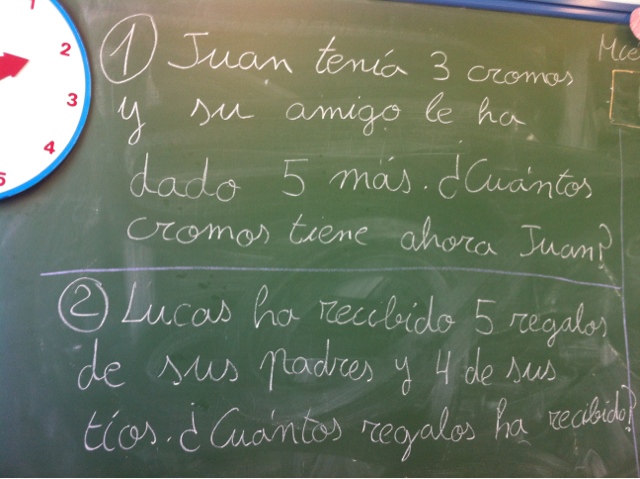 1
2
3
4
5
Mié
① Juan tenía 3 cromos
y su amigo le ha
dado 5 más. ¿Cuántos
cromos tiene ahora Juan?
② Lucas ha recibido 5 regalos
de sus padres y 4 de sus
tíos. ¿Cuántos regalos ha recibido?